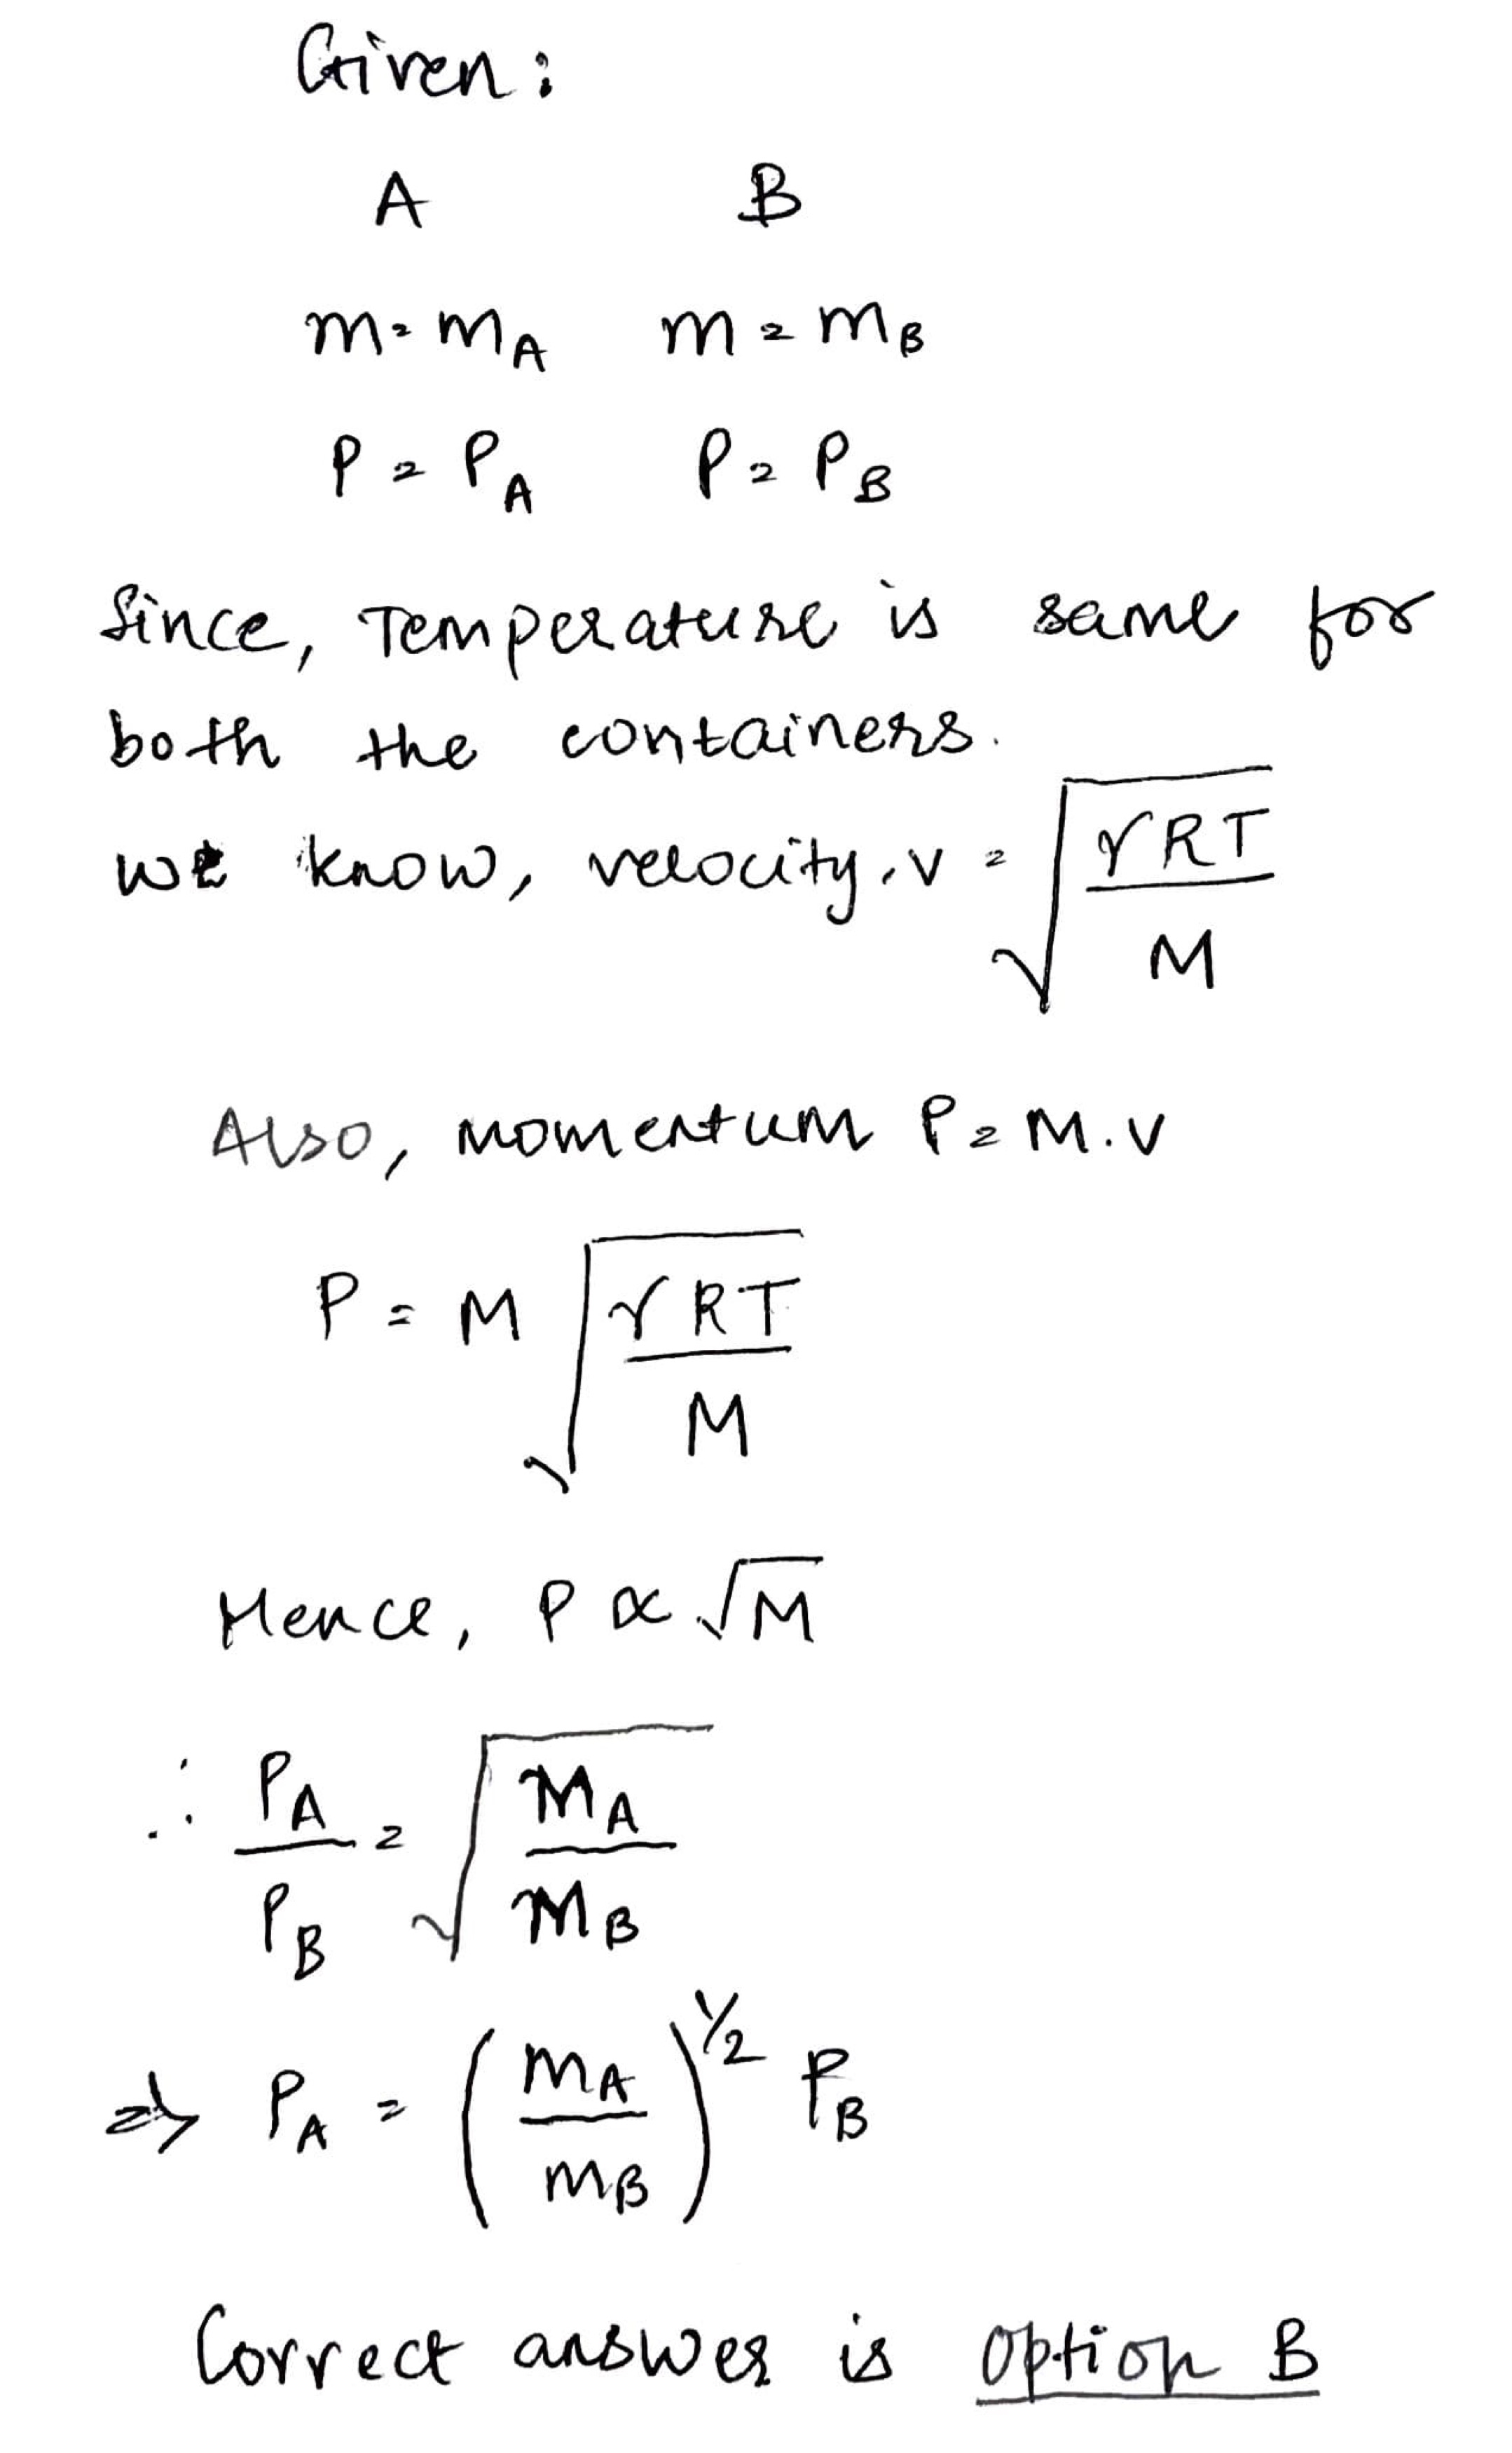 Given:
A B
m = mA m = mB
P = PA P = PB
Since, Temperature is same for
both the containers.
we know, velocity, v = √(γRT/M)
Also, Momentum P = M.v
P = M √(γRT/M)
Hence, P ∝ √M
∴ PA/PB = √(MA/MB)
⇒ PA = (mA/mB)^1/2 PB
Correct answer is option B